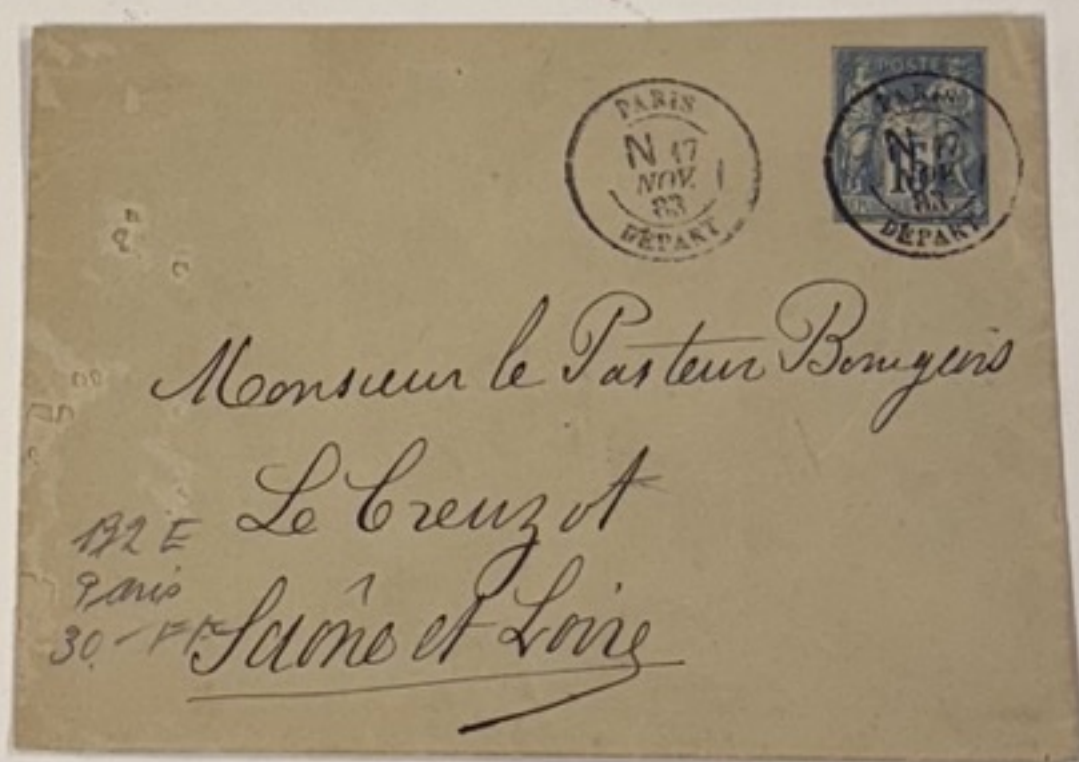 PARIS
N 17
NOV.
83
DÉPART
POSTE
15
PARIS
N 17
NOV.
83
DÉPART
Monsieur le Pasteur Bourgeois
Le Creuzot
Saône et Loire
Paris
30.- FF